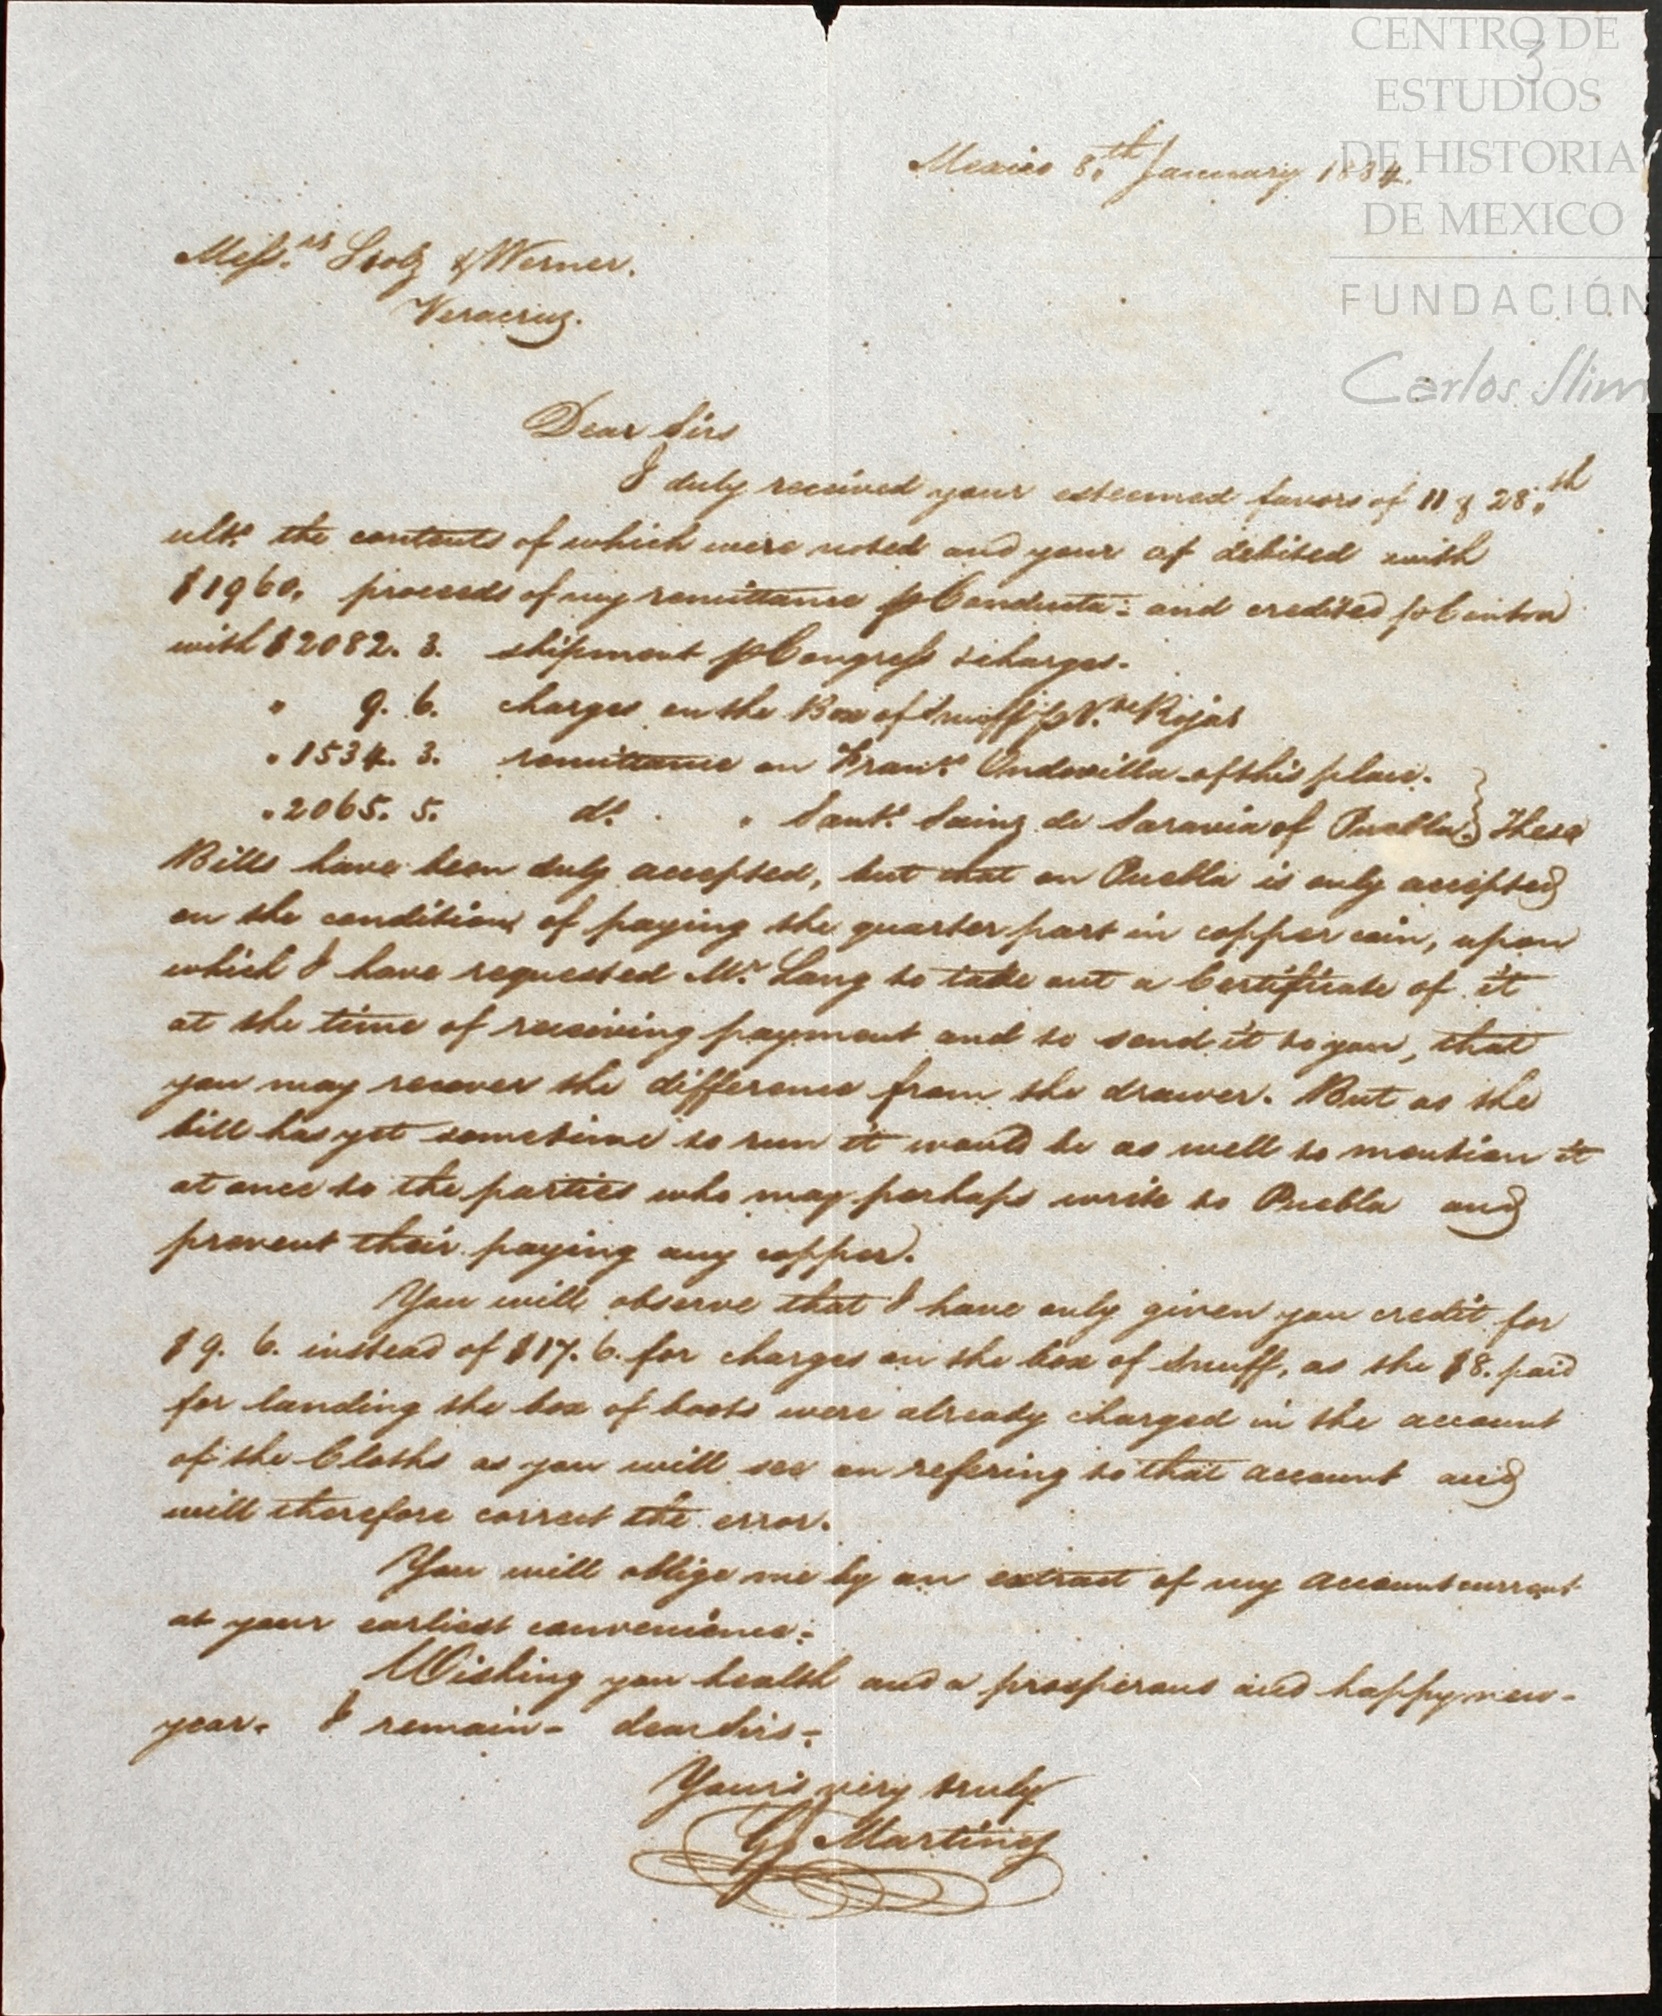 CENTRO DE
ESTUDIOS
DE HISTORIA
DE MEXICO
FUNDACIÓN
Carlos Slim
3
Mexico 8.th January 1834.
Mess.rs Stolz & Werner.
Veracruz.
Dear Sirs
I duly received your esteemed favors of 11 & 28.th
ult.o the contents of which were noted and your a/ debited with
$1960, proceeds of my remittance p Conducta: and credited p
with $2082. 3. shipment p Congress & charges.
" 9. 6. charges on the Box of Snuff p V.te Rojas
" 1534. 3. remittance on Fran.co Ondovilla of this place.
" 2065. 5. d.o " Sant.o Sainz de Saravia of Puebla.} These
Bills have been duly accepted, but that on Puebla is only accepted
on the condition of paying the quarter part in copper coin, upon
which I have requested M.r Lang to take out a Certificate of it
at the time of receiving payment and to send it to you, that
you may recover the difference from the drawer. But as the
bill has yet sometime to run it would be as well to mention it
at once to the parties who may perhaps write to Puebla and
prevent their paying any copper.
You will observe that I have only given you credit for
$9. 6. instead of $17. 6. for charges on the box of Snuff, as the $8. paid
for landing the box of boots were already charged in the account
of the Cloths as you will see on refering to that account and
will therefore correct the error.
You will oblige me by an extract of my account current
at your earliest convenience.
Wishing you health and a prosperous and happy new-
year. I remain- dear Sirs-
Your's very truly
Martinez